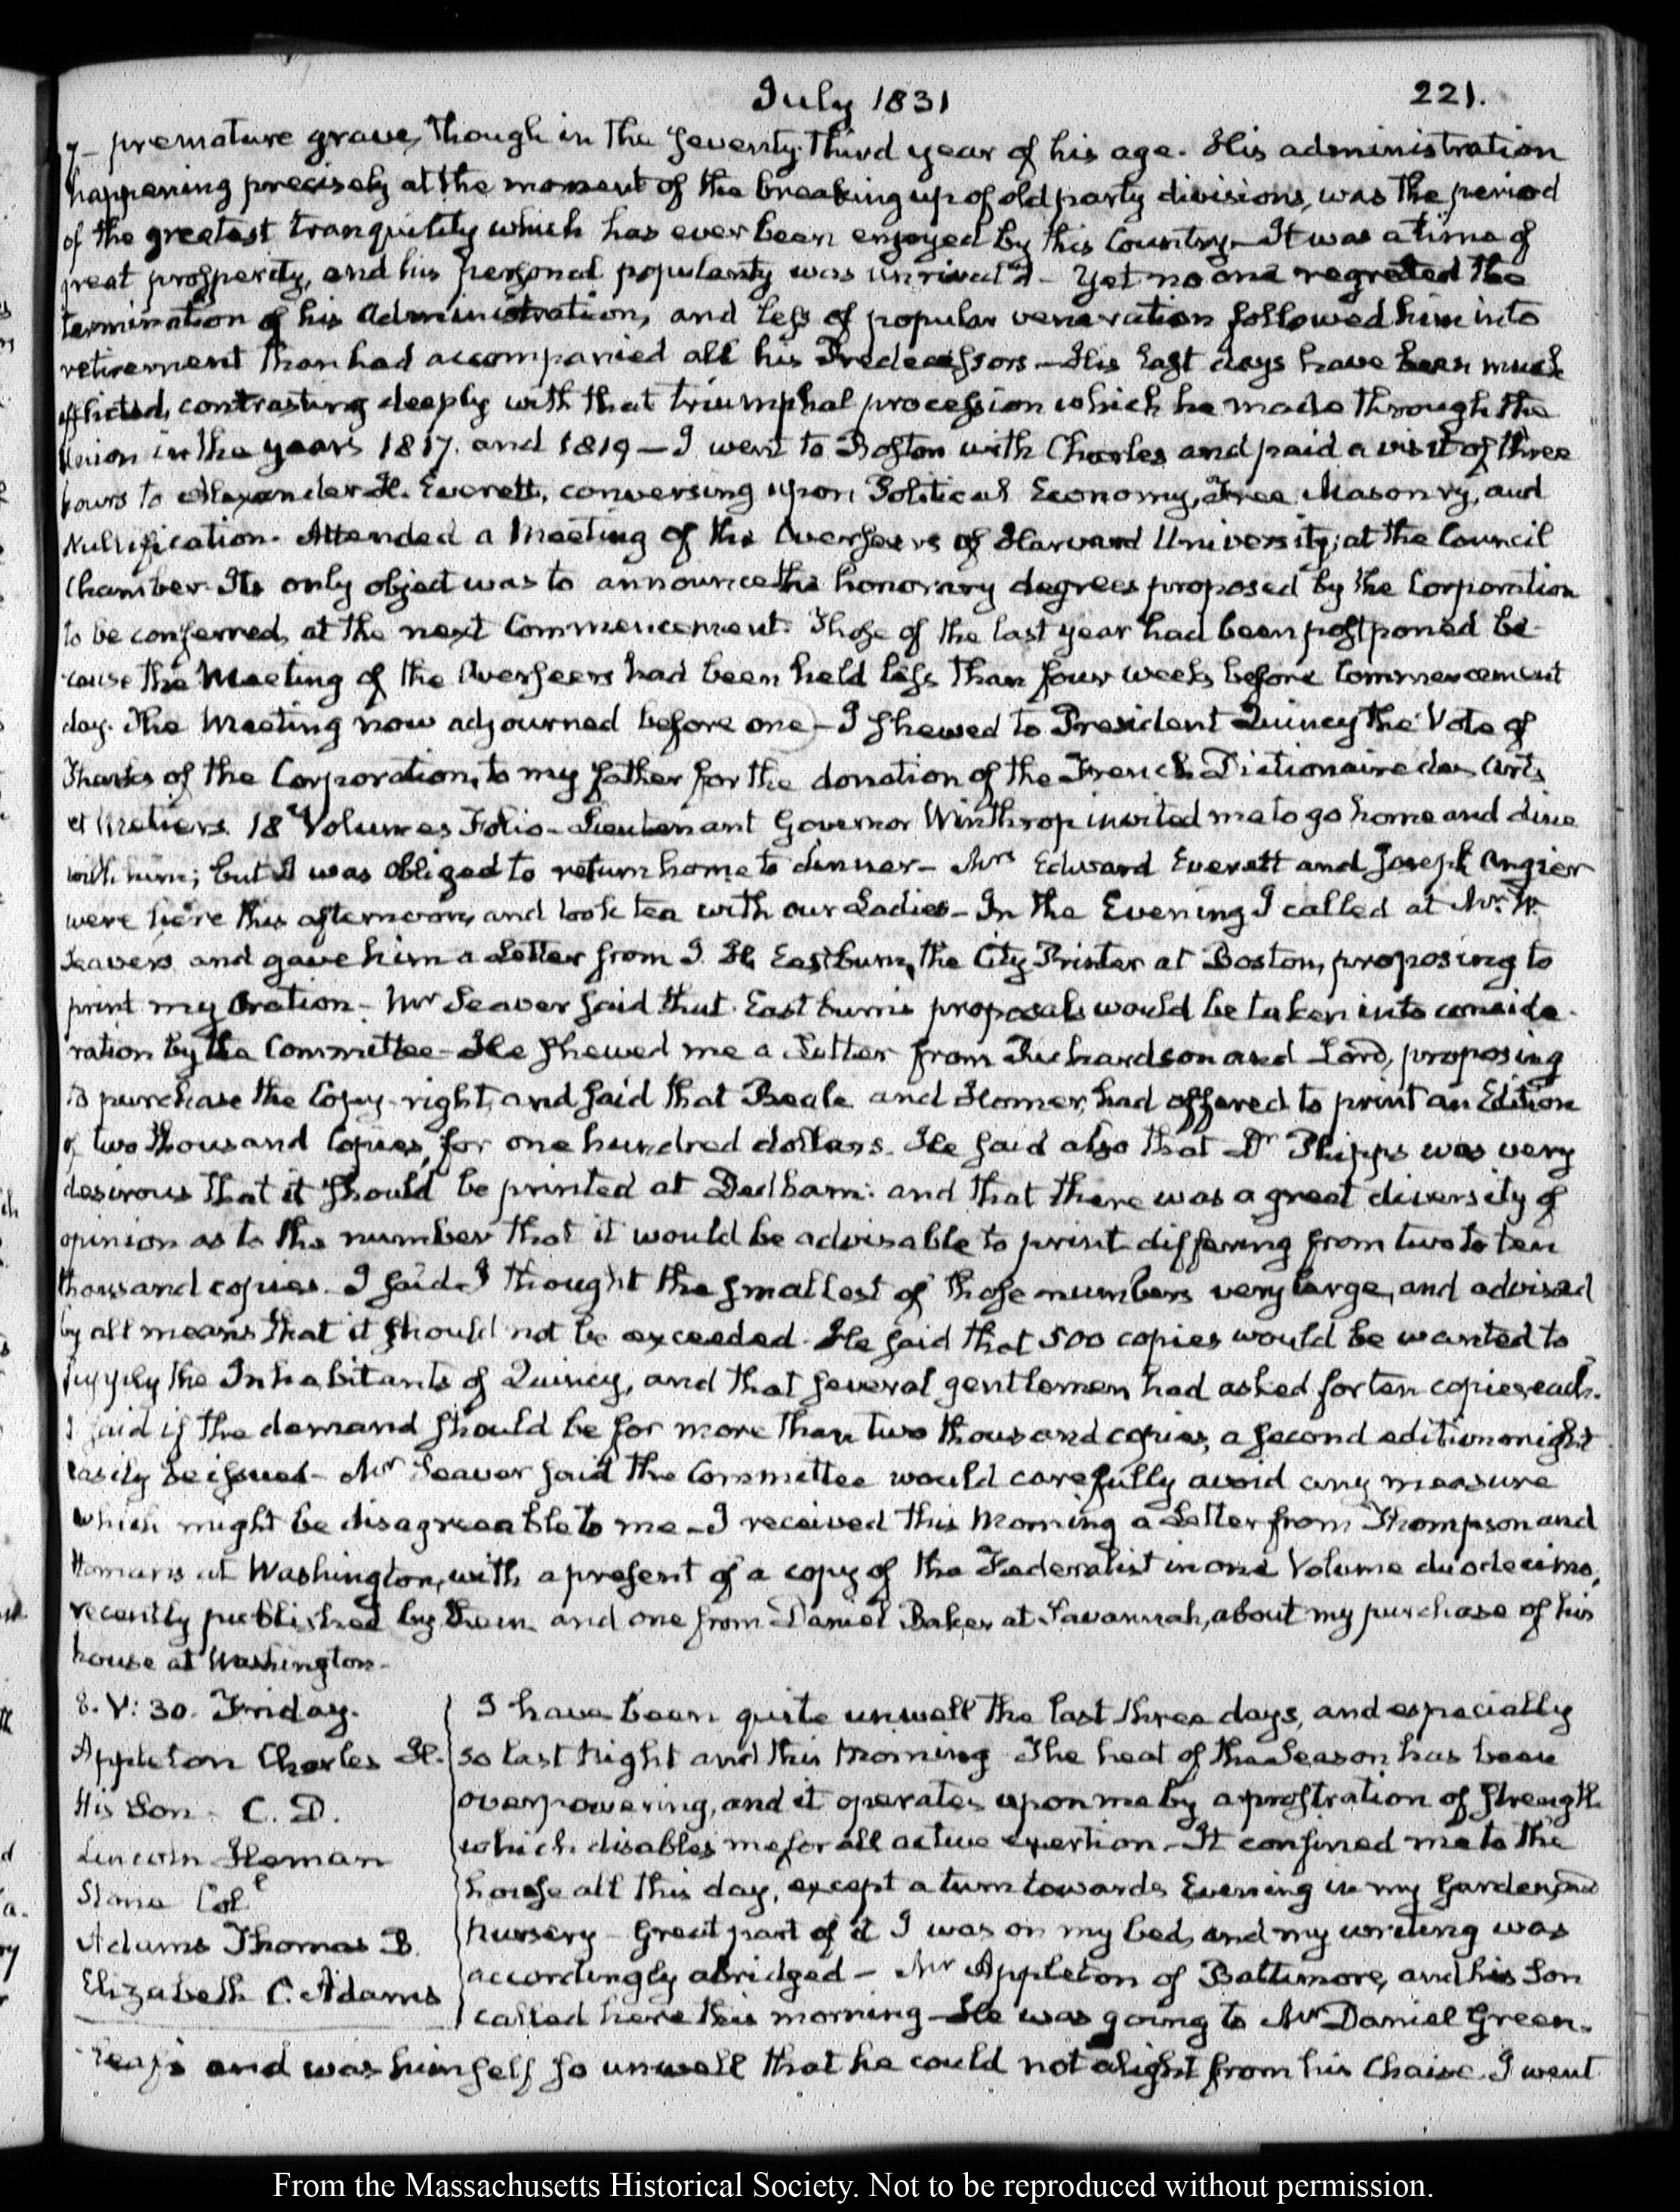 July 1831
221.
7— premature grave, though in the seventy-third year of his age. His administration
happening precisely at the moment of the breaking up of old party divisions, was the period
of the greatest tranquility which has ever been enjoyed by this Country— It was a time of
great prosperity, and his personal popularity was unrivall'd— Yet no one regretted the
termination of his Administration, and less of popular veneration followed him into
retirement than had accompanied all his Predecessors— His last days have been much
afflicted, contrasting deeply with that triumphal procession which he made through the
Union in the years 1817. and 1819— I went to Boston with Charles and paid a visit of three
hours to Alexander H. Everett, conversing upon Political Economy, Free Masonry, and
Nullification. Attended a Meeting of the Overseers of Harvard University; at the Council
Chamber. Its only object was to announce the honorary degrees proposed by the Corporation
to be conferred, at the next Commencement. Those of the last year had been postponed be-
cause the Meeting of the Overseers had been held less than four weeks before Commencement
day. The Meeting now adjourned before one— I shewed to President Quincy the Vote of
Thanks of the Corporation, to my father for the donation of the French Dictionaire des Arts
et Metiers. 18 Volumes Folio— Lieutenant Governor Winthrop invited me to go home and dine
with him; but I was obliged to return home to dinner— Mrs Edward Everett and Joseph Angier
were here this afternoon, and took tea with our Ladies— In the Evening I called at Mr. W.
Seavers and gave him a Letter from J. H. Eastburn, the City Printer at Boston, proposing to
print my Oration— Mr Seaver said that Eastburn's proposals would be taken into conside-
ration by the Committee— He shewed me a Letter from Richardson and Lord, proposing
to purchase the Copy-right, and said that Beale and Homer, had offered to print an Edition
of two thousand Copies, for one hundred dollars. He said also that Dr Phipps was very
desirous that it should be printed at Dedham: and that there was a great diversity of
opinion as to the number that it would be advisable to print differing from two to ten
thousand copies. I said I thought the smallest of those numbers very large, and advised
by all means that it should not be exceeded. He said that 500 copies would be wanted to
supply the Inhabitants of Quincy, and that several gentlemen had asked for ten copies each.
I said if the demand should be for more than two thousand copies, a second edition might
easily be issued— Mr Seaver said the Committee would carefully avoid any measure
which might be disagreeable to me— I received this Morning a Letter from Thompson and
Homans at Washington, with a present of a copy of the Federalist in one Volume duodecimo,
recently published by them and one from Daniel Baker at Savannah, about my purchase of his
house at Washington—
8. V: 30. Friday.
Appleton Charles H.
His Son — C. D.
Lincoln Heman
Stone Col
Adams Thomas B.
Elizabeth C. Adams
I have been quite unwell the last three days, and especially
so last Night and this Morning. The heat of the Season has been
overpowering, and it operates upon me by a prostration of strength
which disables me for all active exertion— It confined me to the
house all this day, except a turn towards Evening in my Garden and
nursery— Great part of it I was on my bed, and my writing was
accordingly abridged— Mr Appleton of Baltimore, and his Son
called here this morning— He was going to Mr Daniel Green-
leaf's and was himself so unwell that he could not alight from his Chaise. I went
From the Massachusetts Historical Society. Not to be reproduced without permission.